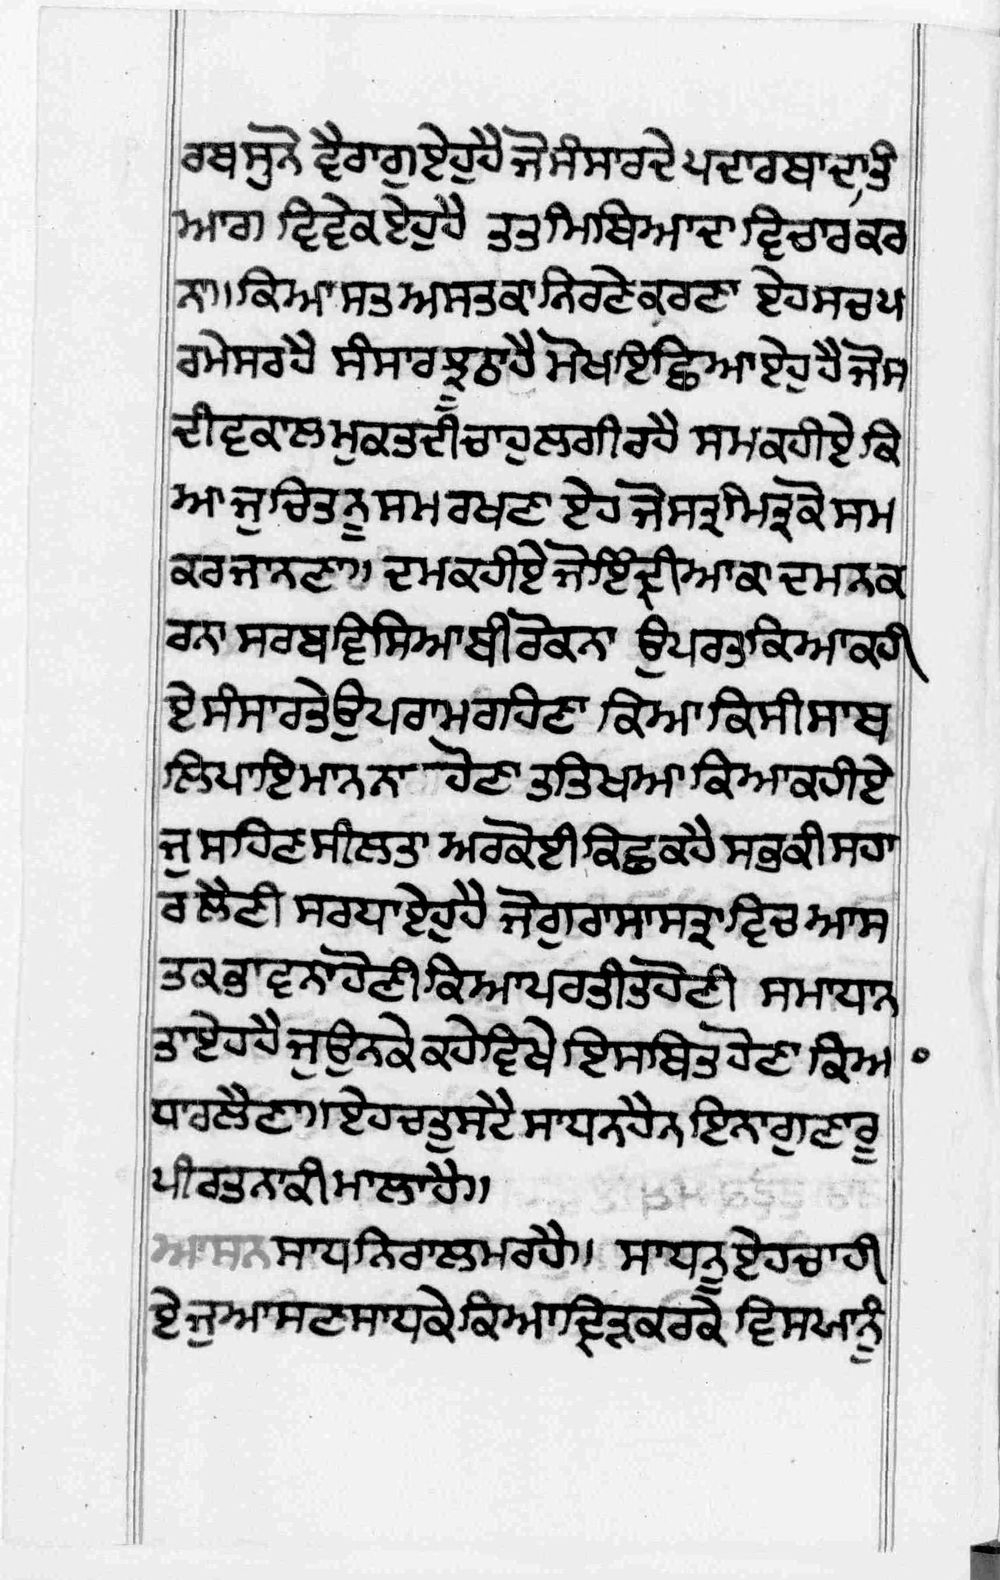 ਰਥ ਸੁਨੋ ਵੈਰਾਗੁ ਏਹੁ ਹੈ ਜੋ ਸੰਸਾਰ ਦੇ ਪਦਾਰਥਾ ਦਾ ਤਿ
ਆਗ ਵਿਵੇਕ ਏਹੁ ਹੈ ਤਤ ਮਿਥਿਆ ਦਾ ਵਿਚਾਰ ਕਰ
ਨਾ॥ ਕਿਆ ਸਤ ਅਸਤ ਕਾ ਨਿਰਣੇ ਕਰਣਾ ਏਹ ਸਚ ਪ
ਰਮੇਸਰ ਹੈ ਸੰਸਾਰ ਝੂਠਾ ਹੈ ਮੋਖ ਇਛਿਆ ਏਹੁ ਹੈ ਜੋ ਸ
ਦੀਵ ਕਾਲ ਮੁਕਤ ਦੀ ਚਾਹੁ ਲਗੀ ਰਹੈ ਸਮ ਕਹੀਏ ਕਿ
ਆ ਜੁ ਚਿਤ ਨੂ ਸਮ ਰਖਣਾ ਏਹ ਜੋ ਸਤ੍ਰ ਮਿਤ੍ਰ ਕੋ ਸਮ
ਕਰ ਜਾਨਣਾ॥ ਦਮ ਕਹੀਏ ਜੋ ਇੰਦ੍ਰੀਆ ਕਾ ਦਮਨ ਕ
ਰਨਾ ਸਰਬ ਵਿਸਿਆ ਥੀ ਰੋਕਨਾ ਉਪਰਤ ਕਿਆ ਕਹੀ
ਏ ਸੰਸਾਰ ਤੇ ਉਪਰਾਮ ਰਹਿਣਾ ਕਿਆ ਕਿਸੀ ਸਾਥ
ਲਿਪਾਇਮਾਨ ਨਾ ਹੋਣਾ ਤਤਿਖਆ ਕਿਆ ਕਹੀਏ
ਜੁ ਸਹਿਣਸੀਲਤਾ ਅਰ ਕੋਈ ਕਿਛੁ ਕਹੈ ਸਭ ਕੀ ਸਹਾ
ਰ ਲੈਣੀ ਸਰਧਾ ਏਹੁ ਹੈ ਜੋ ਗੁਰਾ ਸਾਸਤ੍ਰਾ ਵਿਚ ਆਸ
ਤਕ ਭਾਵਨਾ ਹੋਣੀ ਕਿਆ ਪਰਤੀਤ ਹੋਣੀ ਸਮਾਧਾਨ
ਤਾ ਏਹ ਹੈ ਜੁ ਉਨ ਕੇ ਕਹੇ ਵਿਖੇ ਇਸਥਿਤ ਹੋਣਾ ਕਿਆ
ਧਾਰ ਲੈਣਾ॥ ਏਹ ਚਤੁਸਟੈ ਸਾਧਨ ਹੈਨ ਇਨਾ ਗੁਣਾ ਰੂ
ਪੀ ਰਤਨਾ ਕੀ ਮਾਲਾ ਹੈ॥
ਆਸਨ ਸਾਧ ਨਿਰਾਲਮ ਰਹੈ॥ ਸਾਧ ਨੂ ਏਹ ਚਾਹੀ
ਏ ਜੁ ਆਸਣ ਸਾਧ ਕੇ ਕਿਆ ਦ੍ਰਿੜ ਕਰ ਕੇ ਵਿਸਖਾ ਨੂੰ